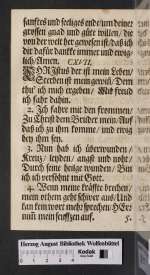 sanfftes und seeliges ende/ um deiner
grossen gnad und güte willen/ die
von der welt her gewesen ist/ daß ich
dir dafür dancke immer und ewig-
lich/ Amen. CXVII.
CHRistus der ist mein Leben/
Sterben ist mein gewinn/ Dem
thu' ich mich ergeben/ Mit freud
ich fahr dahin.
2. Ich fahre mit den frommen/
Zu Christ dem Bruder mein/ Auf
daß ich zu ihm komme/ und ewig
bey ihm sey.
3. Nun hab ich überwunden/
Kreutz/ leyden/ angst und noht/
Durch seine heilge wunden/ Bin
ich versöhnt mit Gott.
4. Wenn meine kräffte brechen/
mein othem geht schwer aus/ Und
kan kein wort mehr sprechen/ HErr
nimm mein seufftzen auf.
5.
Herzog August Bibliothek Wolfenbüttel